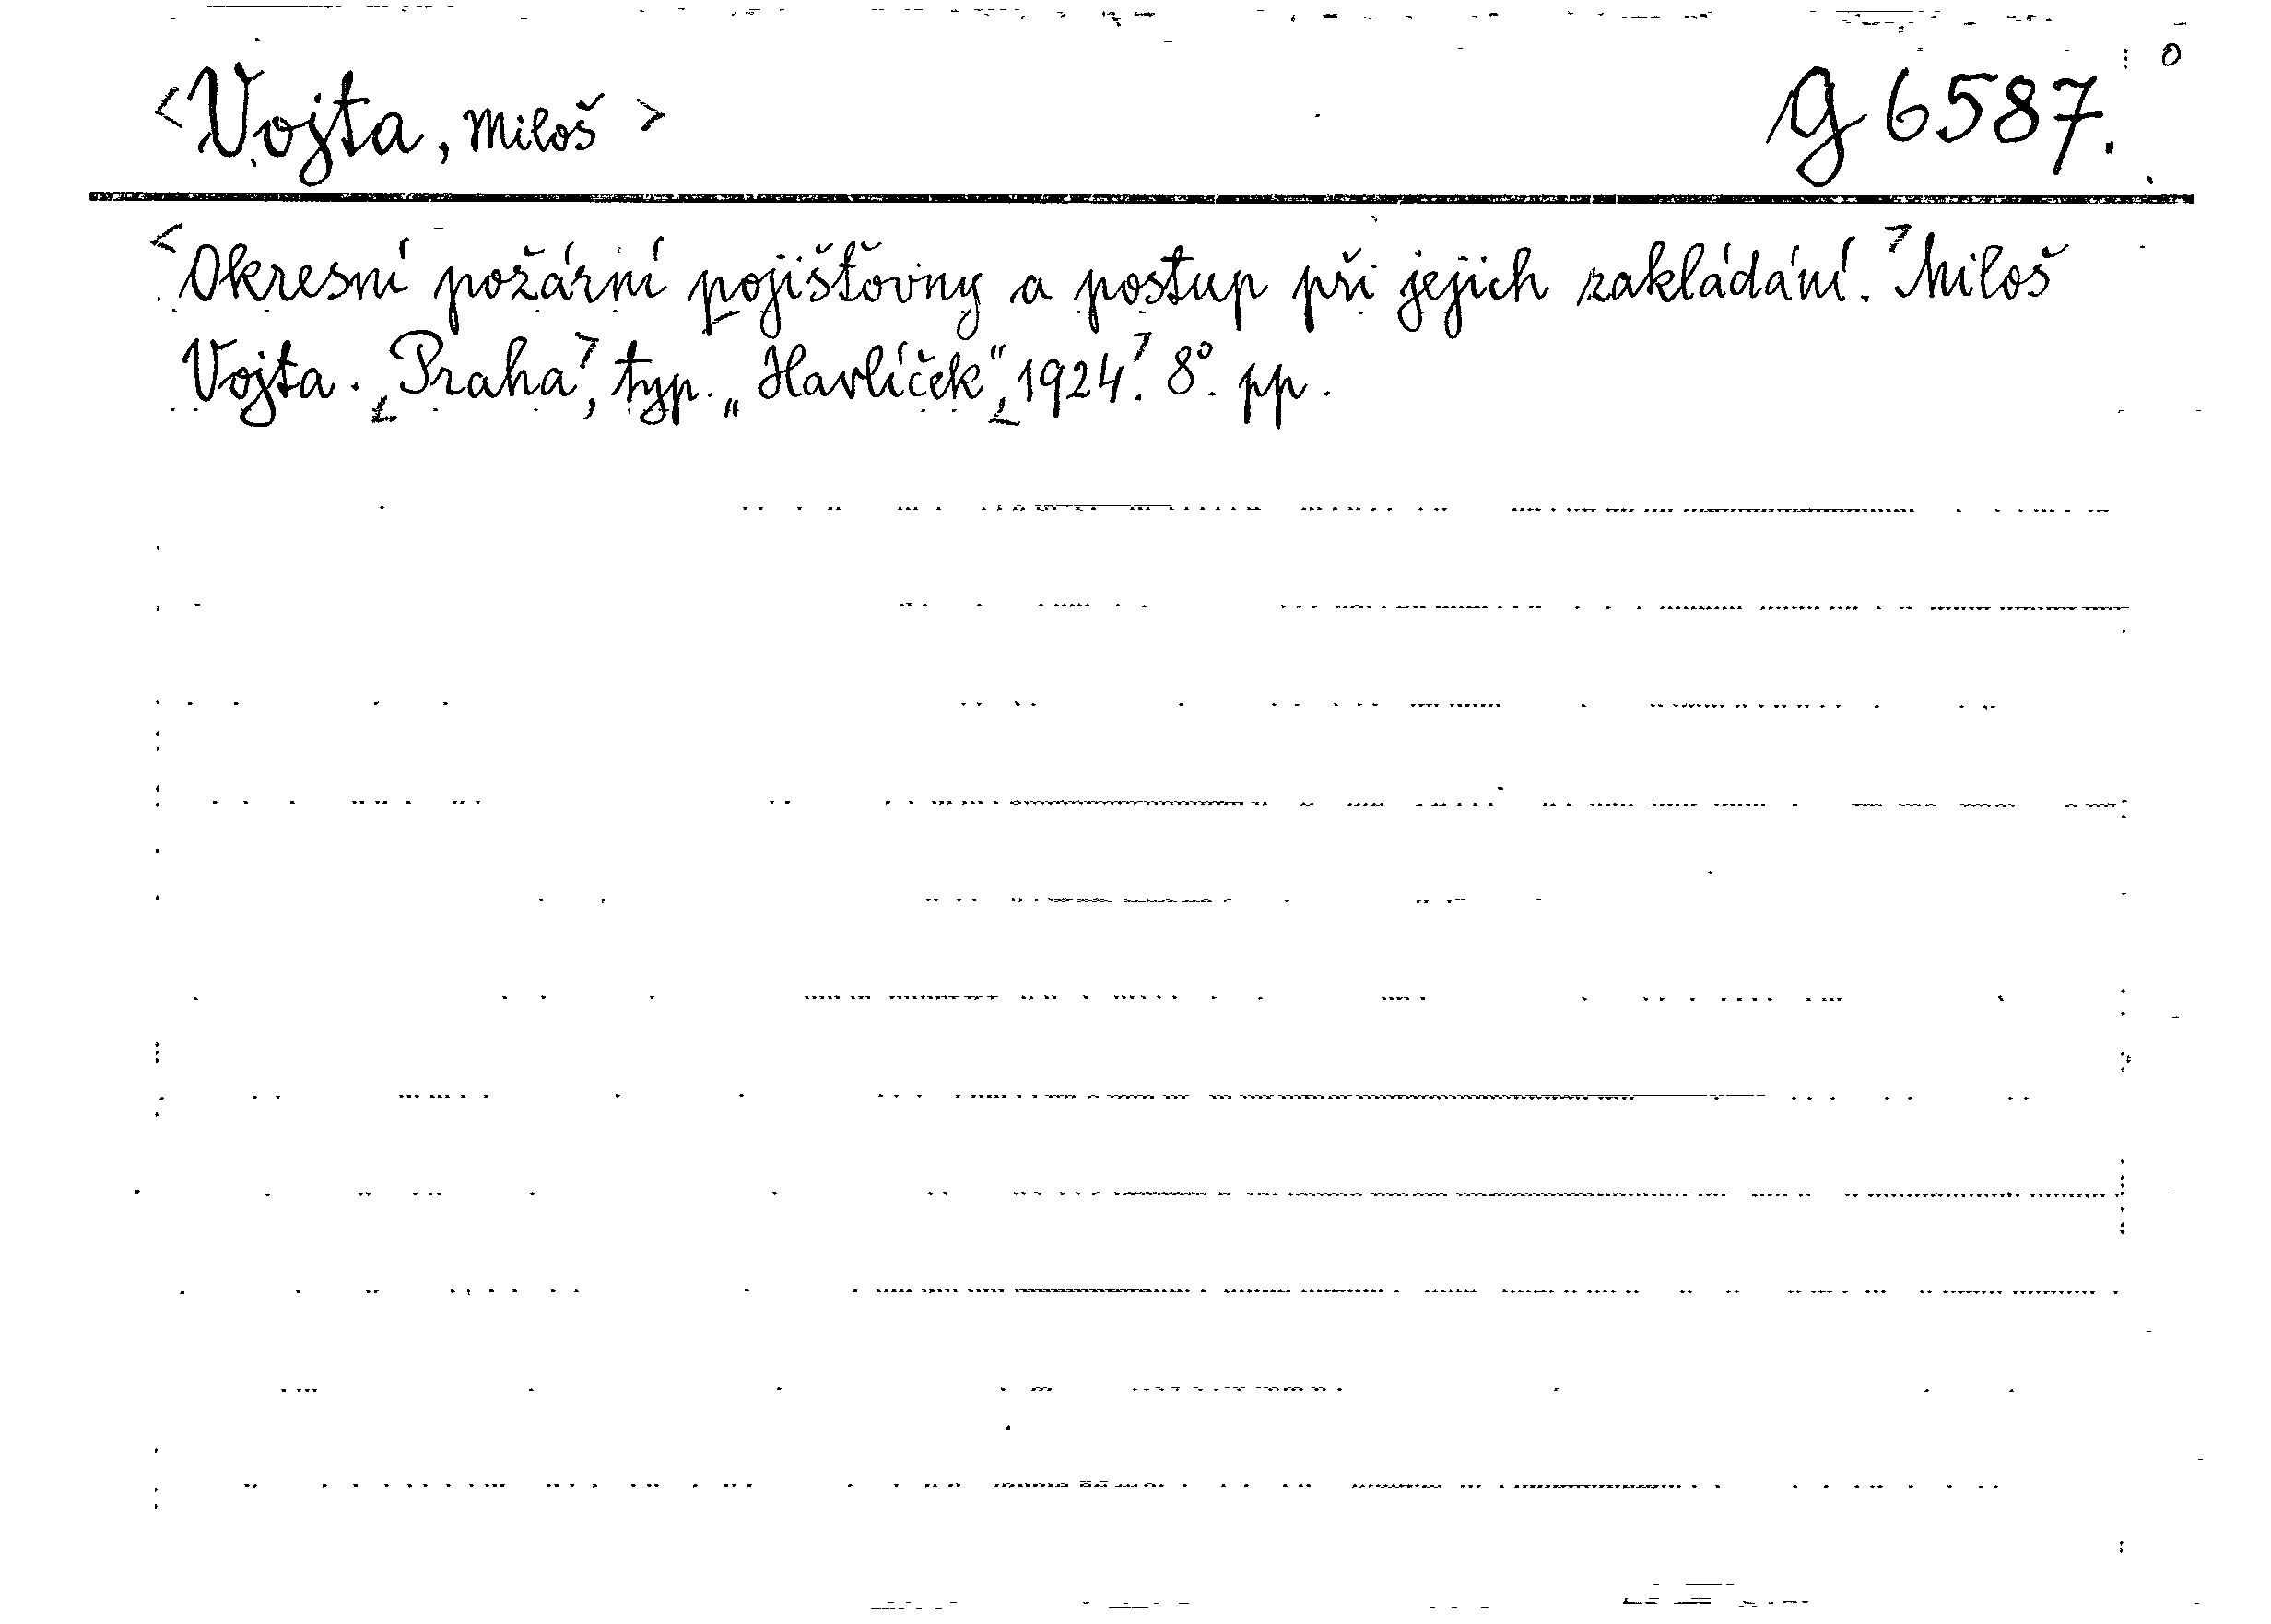 <Vojta, Miloš> g 6587.
<Okresní požární pojišťovny a postup při jejich zakládání.> Miloš
Vojta. <Praha>, typ. „Havlíček“, <1924.> 8°. pp.